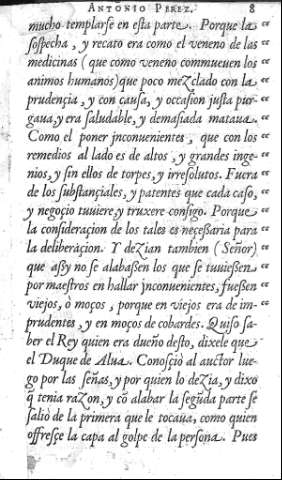 ANTONIO PEREZ. 8
mucho templarse en esta parte. Porque la “
sospecha, y recato era como el veneno de las “
medicinas (que como veneno commueuen los “
animos humanos) que poco mezclado con la “
prudençia, y con causa, y occasion justa pur- “
gaua, y era saludable, y demasiada mataua. “
Como el poner jnconuenientes, que con los “
remedios al lado es de altos, y grandes inge- “
nios, y sin ellos de torpes, y irresolutos. Fuera “
de los substançiales, y patentes que cada caso, “
y negoçio tuuiere, y truxere consigo. Porque “
la consideraçion de los tales es neçeßaria para “
la deliberàçion. Y dezian tambien (Señor) “
que aßy no se alabaßen los que se tuuießen “
por maestros en hallar jnconuenientes, fueßen “
viejos, ò moços, porque en viejos era de im- “
prudentes, y en moços de cobardes. Quiso sa-
ber el Rey quien era dueño desto, dixele que
el Duque de Alua. Conosçiò al auctor lue-
go por las señas, y por quien lo dezia, y dixo
q̃ tenia razon, y cõ alabar la segũda parte se
saliò de la primera que le tocaua, como quien
offresçe la capa al golpe de la persona. Pues